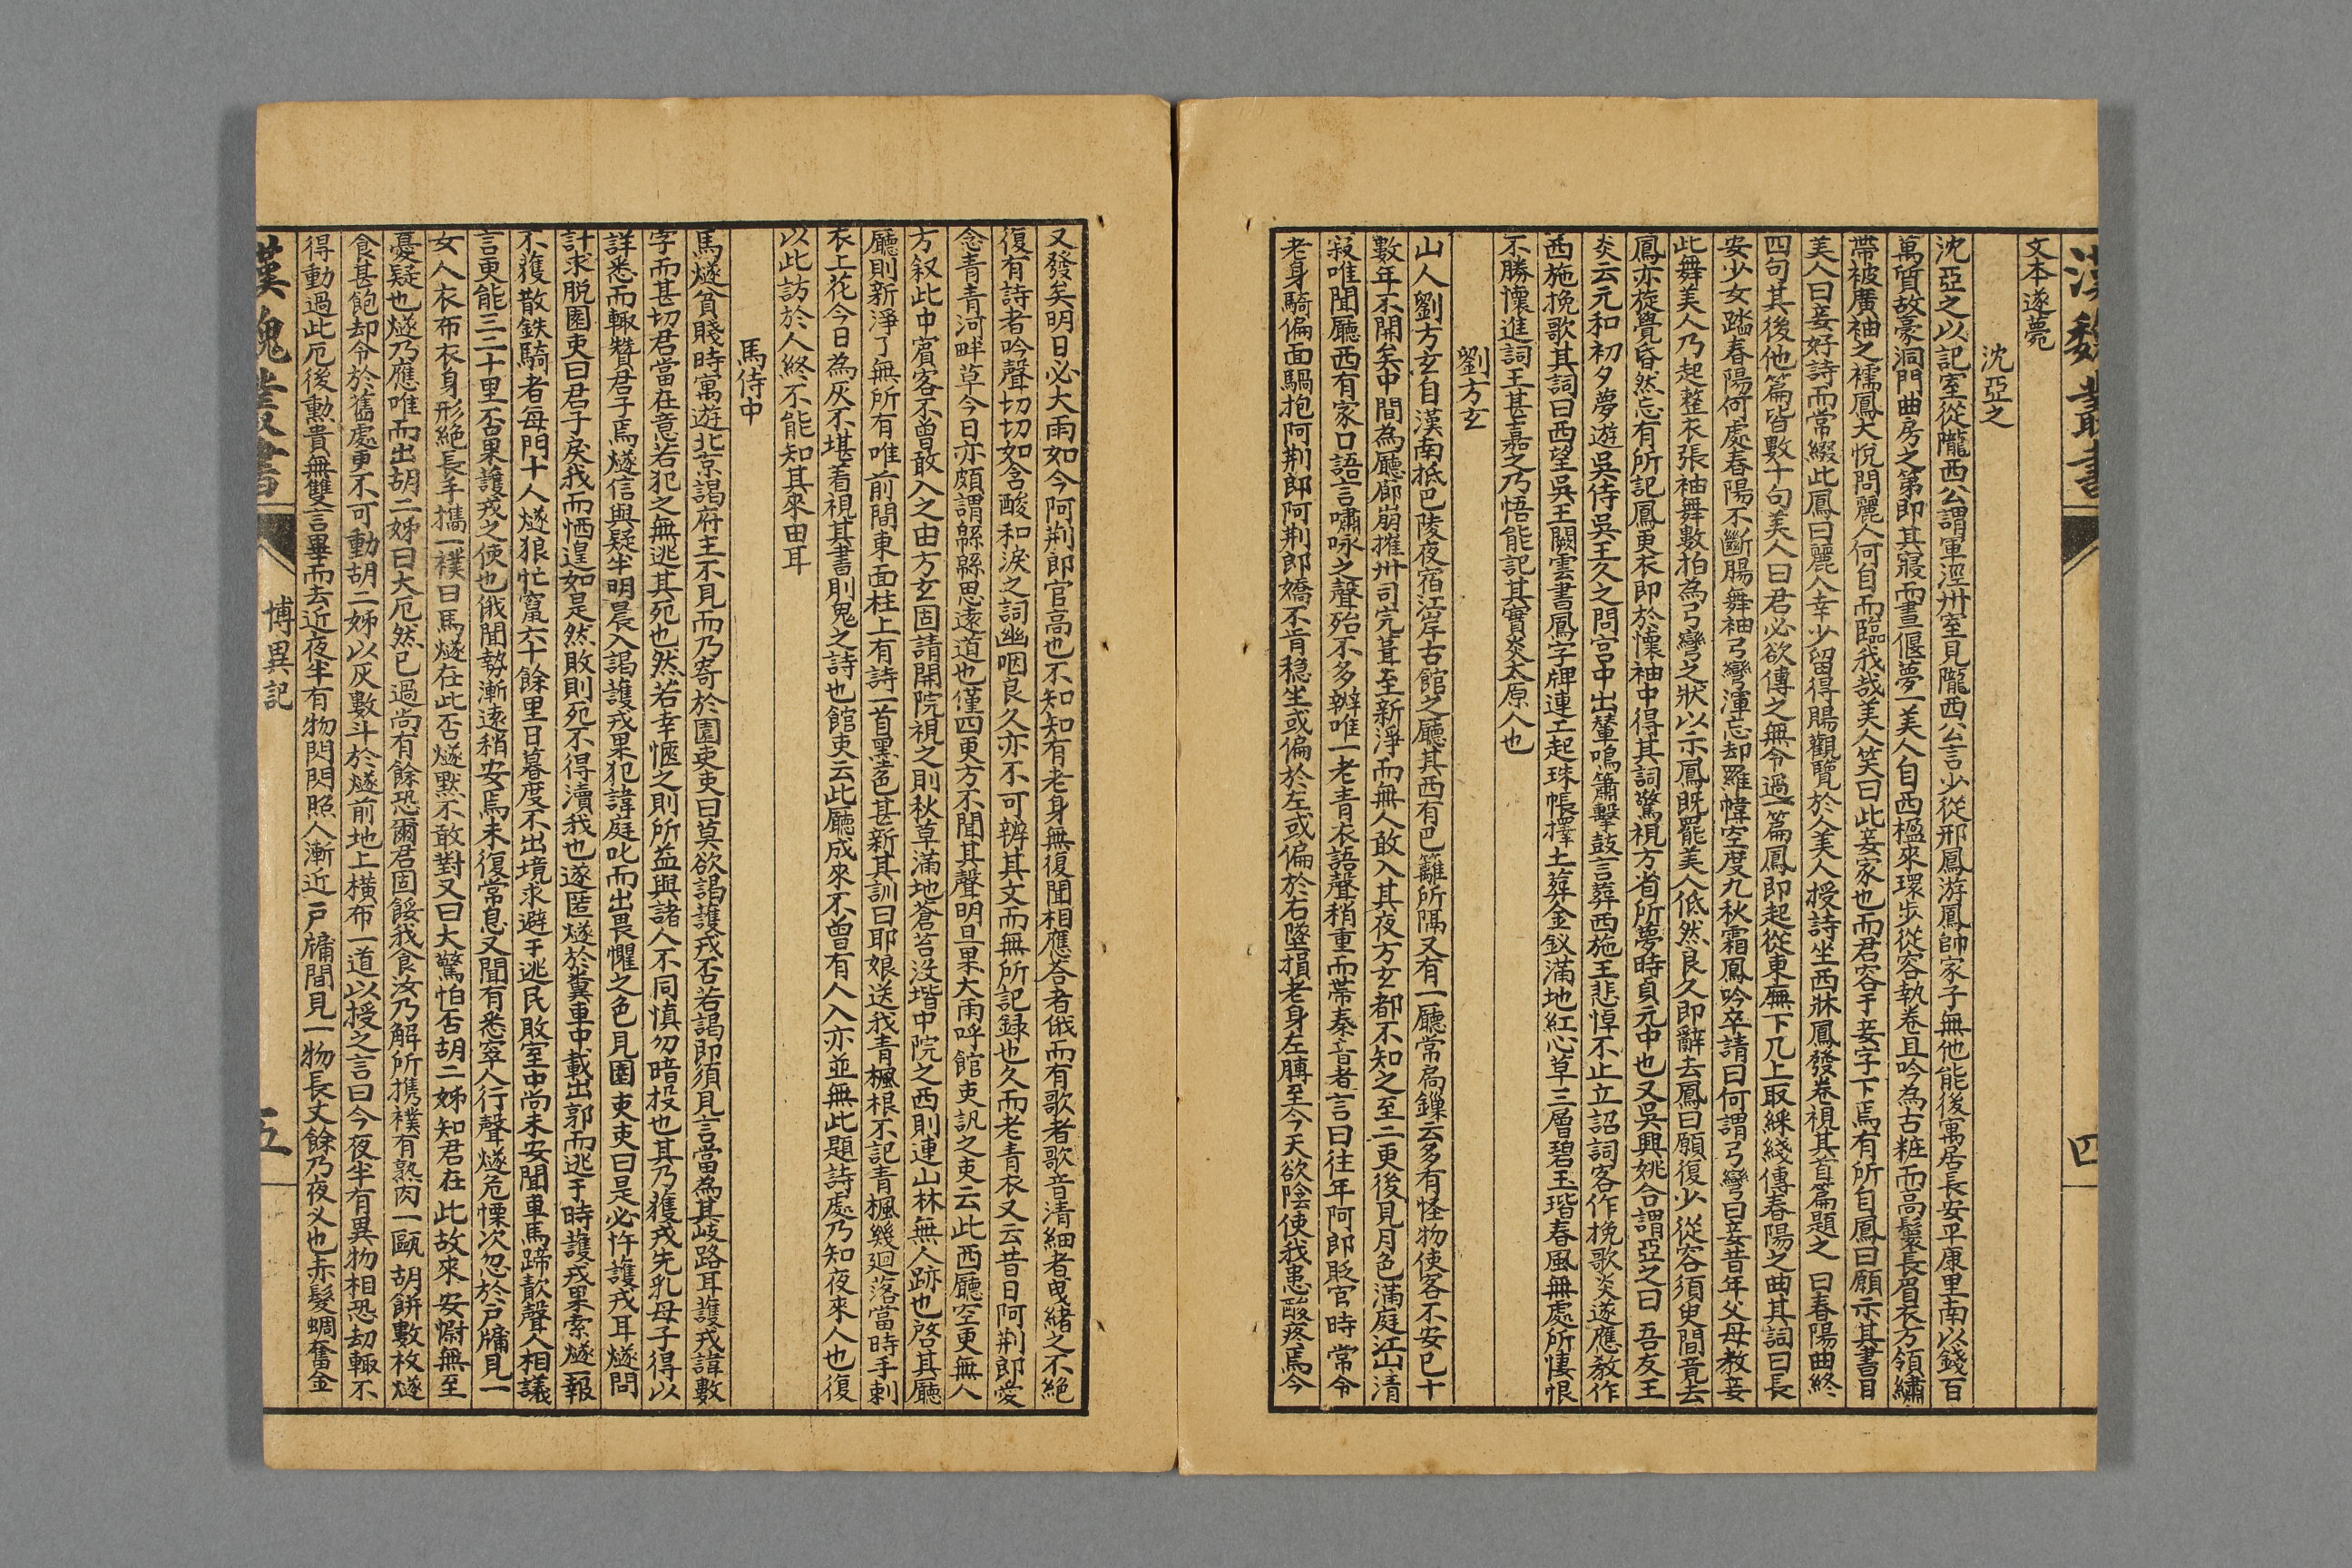 漢魏叢書
四
文本遂薨
沈亞之
沈亞之以記室從隴西公謂軍涇州室見隴西公言少從邢鳳游鳳帥家子無他能後寓居長安平康里南以錢百
萬質故豪洞門曲房之第即其寢而晝偃夢一美人自西楹來環步從容執卷且吟為古粧而高鬟長眉衣方領繡
帶被廣袖之襦鳳大悅問麗人何自而臨我哉美人笑曰此妾家也而君容于妾字下焉有所自鳳曰願示其書目
美人曰妾好詩而常綴此鳳曰麗人幸少留得賜觀覽於人美人授詩坐西牀鳳發卷視其首篇題之曰春陽曲終
四句其後他篇皆數十句美人曰君必欲傳之無令過一篇鳳即起從東廡下几上取綵綫傳春陽之曲其詞曰長
安少女踏春陽何處春陽不斷腸舞袖弓彎渾忘却羅幃空度九秋霜鳳吟卒請曰何謂弓彎曰妾昔年父母教妾
此舞美人乃起整衣張袖舞數拍為弓彎之狀以示鳳既罷美人低然良久即辭去鳳曰願復少從容須臾間竟去
鳳亦旋覺昏然忘有所記鳳更衣即於懷袖中得其詞驚視方省所夢時貞元中也又吳興姚合謂亞之曰吾友王
炎云元和初夕夢遊吳侍吳王久之問宮中出輦鳴簫擊鼓言葬西施王悲悼不止立詔詞客作挽歌炎遂應教作
西施挽歌其詞曰西望吳王闕雲書鳳字牌連工起珠帳擇土葬金釵滿地紅心草三層碧玉階春風無處所悽恨
不勝懷進詞王甚嘉之乃悟能記其實炎太原人也
劉方玄
山人劉方玄自漢南抵巴陵夜宿江岸古館之廳其西有巴籬所隔又有一廳常扃鏁云多有怪物使客不安已十
數年不開矣中間為廳廊崩摧州司完葺至新淨而無人敢入其夜方玄都不知之至二更後見月色滿庭江山清
寂唯聞廳西有家口語言嘯咏之聲殆不多辨唯一老青衣語聲稍重而帶秦音者言曰往年阿郎貶官時常令
老身騎偏面騧抱阿荆郎阿荆郎嬌不肯穩坐或偏於左或偏於右墜損老身左膊至今天欲陰使我患酸疼焉今
又發矣明日必大雨如今阿荆郎官高也不知知有老身無復聞相應荅者俄而有歌者歌音清細者曳緒之不絶
復有詩者吟聲切切如含酸和淚之詞幽咽良久亦不可辨其文而無所記録也久而老青衣又云昔日阿荆郎愛
念青青河畔草今日亦頗謂緜緜思遠道也僅四更方不聞其聲明旦果大雨呼館吏訊之吏云此西廳空更無人
方叙此中賓客不曾敢入之由方玄固請開院視之則秋草滿地蒼苔没堦中院之西則連山林無人跡也啓其廳
廳則新淨了無所有唯前間東面柱上有詩一首黑色甚新其訓曰耶娘送我青楓根不記青楓幾廻落當時手刺
衣上花今日為灰不堪着視其書則鬼之詩也館吏云此廳成來不曾有人入亦並無此題詩處乃知夜來人也復
以此訪於人終不能知其來由耳
馬侍中
馬燧貧賤時寓遊北京謁府主不見而乃寄於園吏吏曰莫欲謁護戎否若謁即須見言當為其歧路耳護戎諱數
字而甚切君當在意若犯之無逃其死也然若幸愜之則所益與諸人不同慎勿暗投也其乃獲戎先乳母子得以
詳悉而輙贊君子焉燧信與疑半明晨入謁護戎果犯諱庭叱而出畏懼之色見園吏吏曰是必忤護戎耳燧問
計求脱園吏曰君子戾我而恓遑如是然敗則死不得瀆我也遂匿燧於糞車中載出郭而逃于時護戎果索燧一報
不獲散鉄騎者每門十人燧狼忙竄六十餘里日暮度不出境求避于逃民敗室中尚未安聞車馬蹄歕聲人相議
言更能三二十里否果護戎之使也俄聞勢漸遠稍安焉未復常息又聞有悉窣人行聲燧危慄次忽於戸牖見一
女人衣布衣身形絶長手攜一襆曰馬燧在此否燧黙不敢對又曰大驚怕否胡二姊知君在此故來安慰無至
憂疑也燧乃應唯而出胡二姊曰大厄然已過尚有餘恐爾君固餒我食汝乃解所携襆有熟肉一甌胡餅數枚燧
食甚飽却令於舊處更不可動胡二姊以灰數斗於燧前地上横布一道以授之言曰今夜半有異物相恐劫輙不
得動過此厄後勳貴無雙言畢而去近夜半有物閃閃照人漸近戸牖間見一物長丈餘乃夜义也赤髮蝟奮金
漢魏叢書
博異記
五